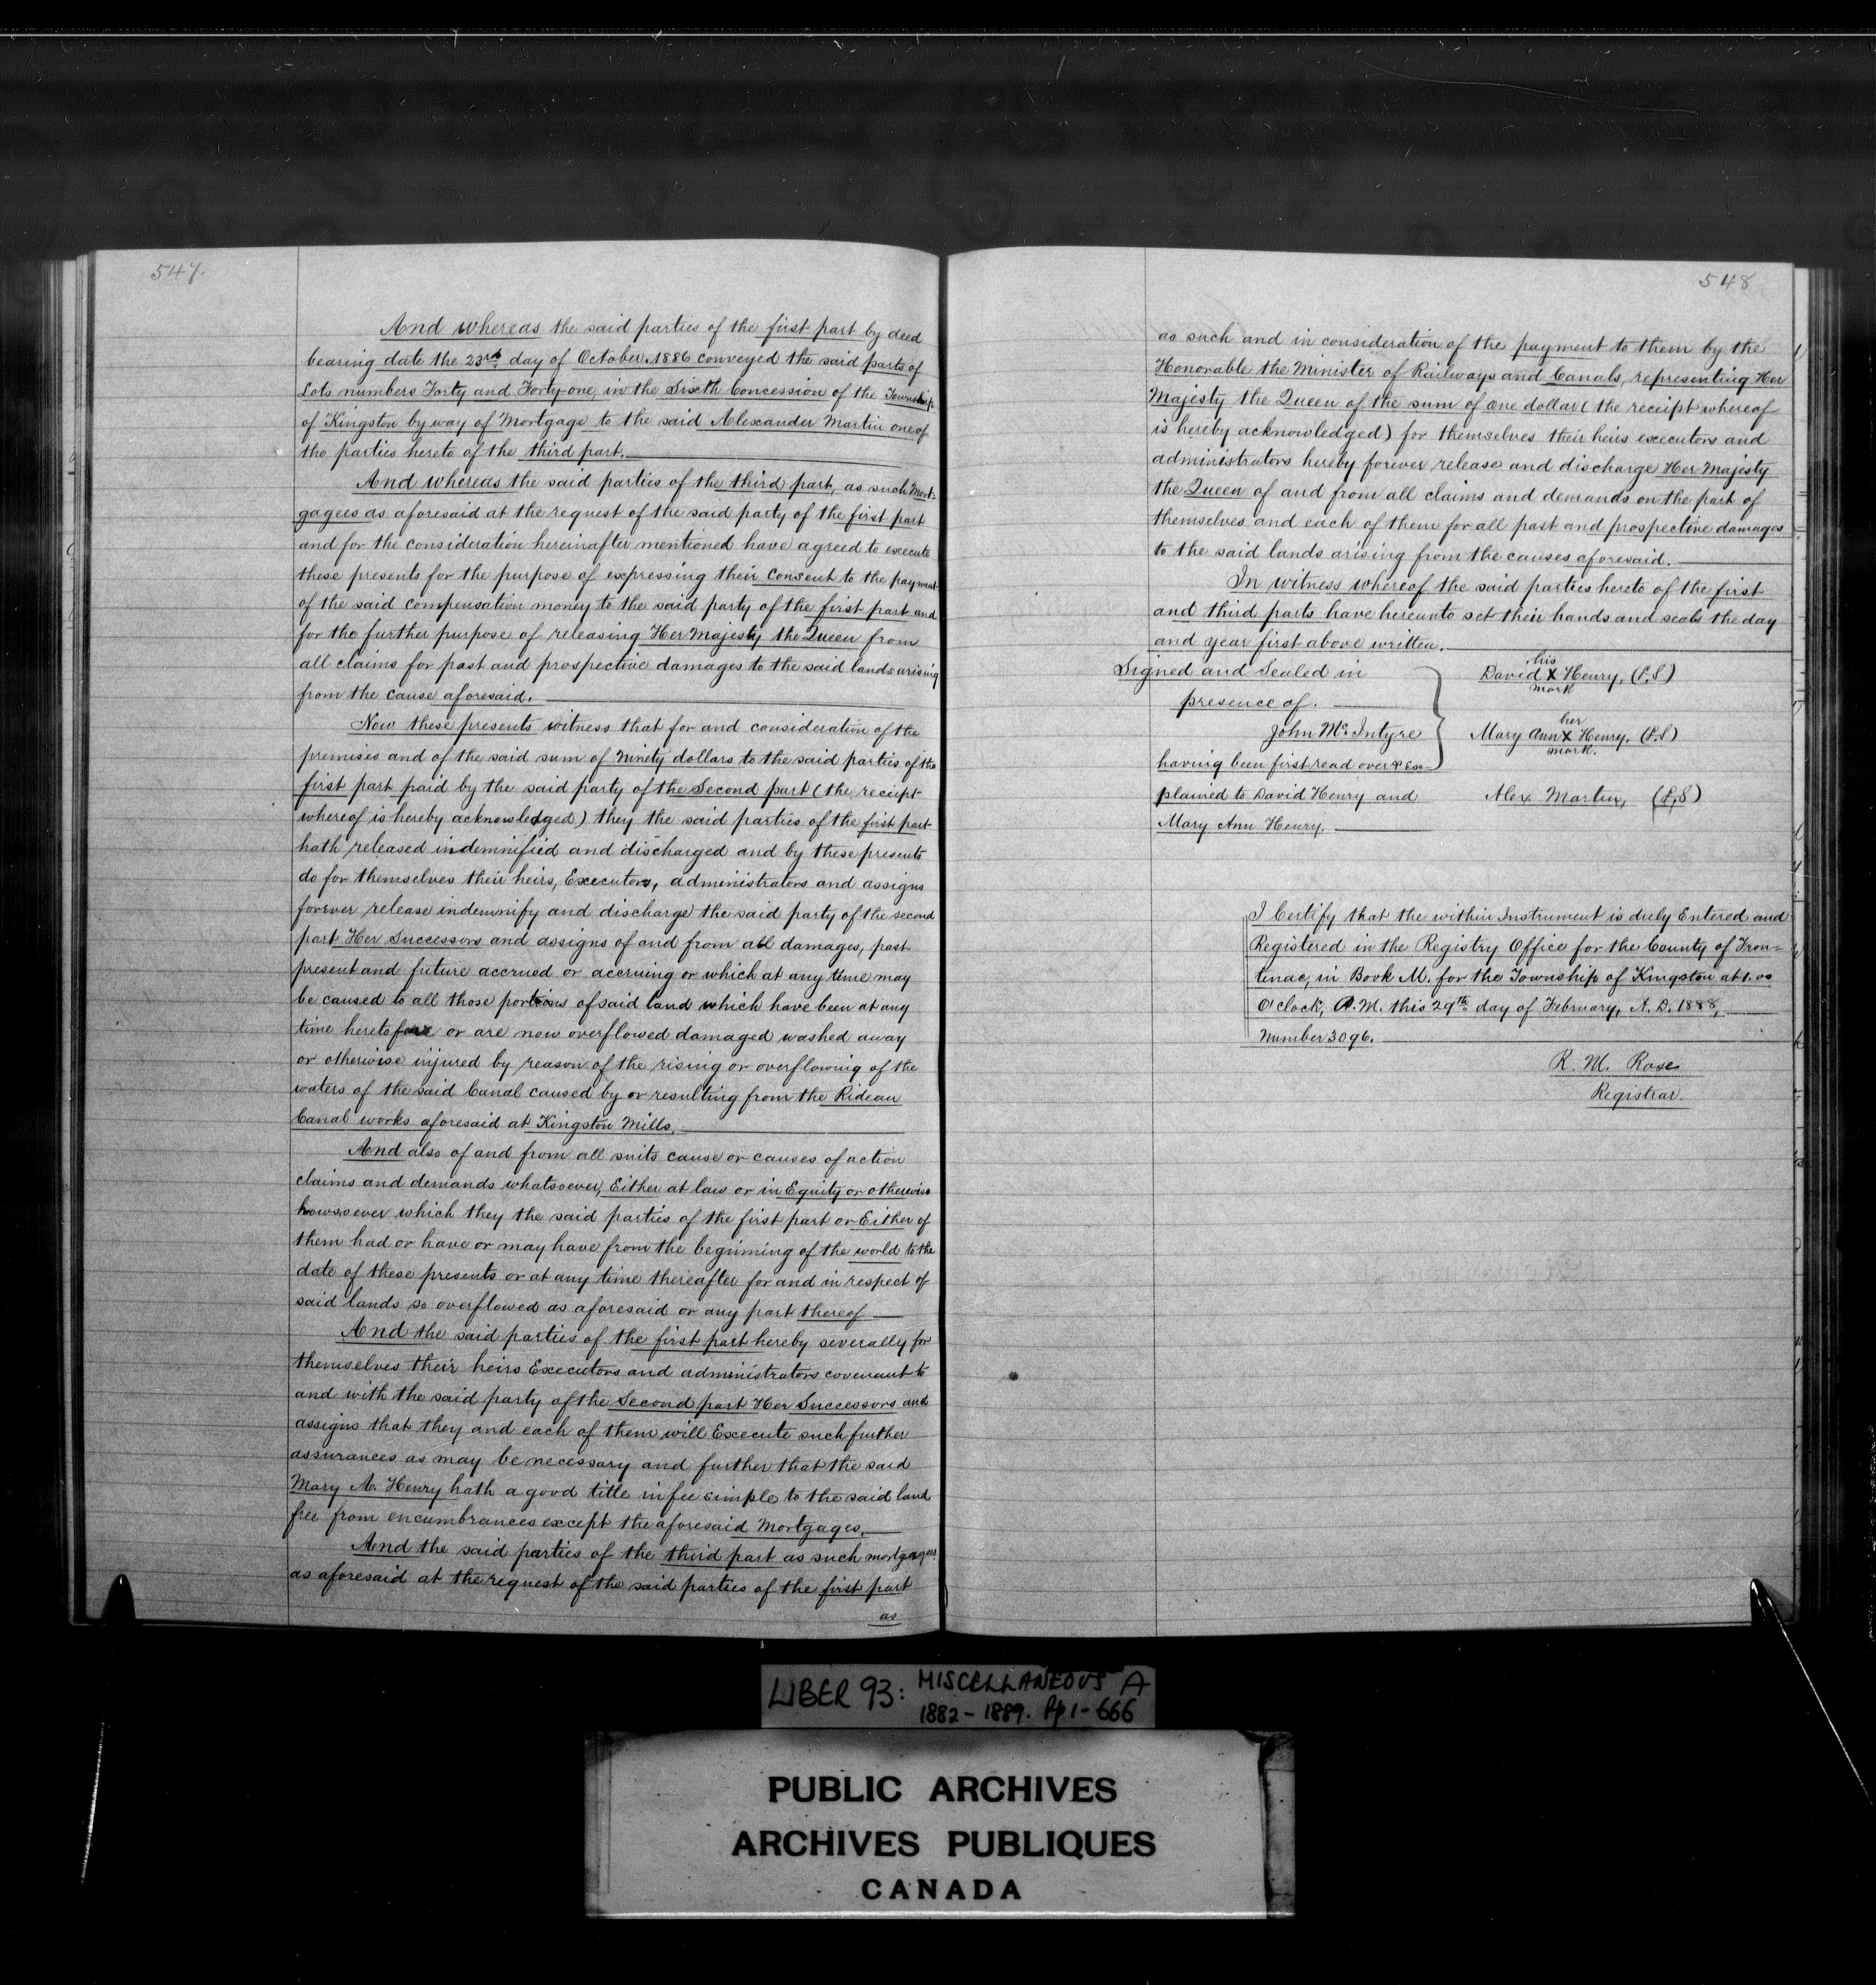 547.
And whereas the said parties of the first part by deed
bearing date the 23rd day of October 1886 conveyed the said parts of
Lots numbers Forty and Forty-one, in the Sixth Concession of the Township
of Kingston by way of Mortgage to the said Alexander Martin one of
the parties hereto of the third part.
And whereas the said parties of the third part, as such Mort=
gagees as aforesaid at the request of the said party of the first part
and for the consideration hereinafter mentioned have agreed to execute
these presents for the purpose of expressing their consent to the payment
of the said compensation money to the said party of the first part and
for the further purpose of releasing Her Majesty the Queen from
all claims for past and prospective damages to the said lands arising
from the cause aforesaid.
Now these presents witness that for and consideration of the
premises and of the said sum of Ninety dollars to the said parties of the
first part paid by the said party of the Second part (the receipt
whereof is hereby acknowledged) they the said parties of the first part
hath released indemnified and discharged and by these presents
do for themselves their heirs, Executors, administrators and assigns
forever release indemnify and discharge the said party of the second
part Her Successors and assigns of and from all damages, past
present and future accrued or accruing or which at any time may
be caused to all those portions of said land which have been at any
time heretofore or are now overflowed damaged washed away
or otherwise injured by reason of the rising or overflowing of the
waters of the said Canal caused by or resulting from the Rideau
Canal works aforesaid at Kingston Mills.
And also of and from all suits cause or causes of action
claims and demands whatsoever, Either at law or in Equity or otherwise
howsoever which they the said parties of the first part or Either of
them had or have or may have from the beginning of the world to the
date of these presents or at any time thereafter for and in respect of
said lands so overflowed as aforesaid or any part thereof
And the said parties of the first part hereby severally for
themselves their heirs Executors and administrators covenant to
and with the said party of the Second part Her Successors and
assigns that they and each of them will Execute such further
assurances as may be necessary and further that the said
Mary A. Henry hath a good title in fee simple to the said land
free from encumbrances except the aforesaid Mortgages.
And the said parties of the third part as such mortgagees
as aforesaid at the request of the said parties of the first part
as
548
as such and in consideration of the payment to them by the
Honorable the Minister of Railways and Canals, representing Her
Majesty the Queen of the sum of one dollar (the receipt whereof
is hereby acknowledged) for themselves their heirs executors and
administrators hereby forever release and discharge Her Majesty
the Queen of and from all claims and demands on the part of
themselves and each of them for all past and prospective damages
to the said lands arising from the causes aforesaid.
In witness whereof the said parties hereto of the first
and third parts have hereunto set their hands and seals the day
and year first above written.
Signed and Sealed in
presence of.
John McIntyre
having been first read over & Ex=
plained to David Henry and
Mary Ann Henry.
his
David X Henry, (L.S)
mark
her
Mary Ann X Henry. (L.S)
mark.
Alex. Martin, (L.S)
I Certify that the within Instrument is duly Entered and
Registered in the Registry Office for the County of Fron=
tenac, in Book M. for the Township of Kingston at 1.00
O'clock, P.M. this 29th day of February, A.D. 1888,
Number 3096.
R. M. Rose
Registrar.
LIBER 93: MISCELLANEOUS A
1882-1889. Pp 1-666
PUBLIC ARCHIVES
ARCHIVES PUBLIQUES
CANADA